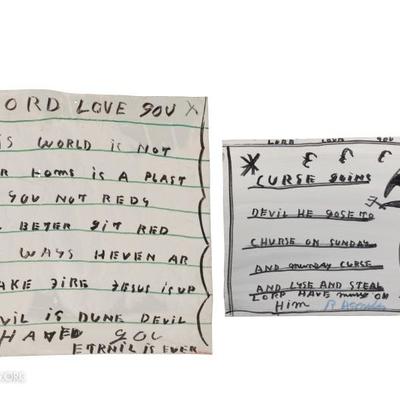 ORD LOVE YOU X
IS WORLD IS NOT
R HOMS IS A PLAST
YOU NOT REDY
BETER GIT RED
WAYS HEVEN AR
AKE FIRE JESUS IS UP
VIL IS DUNE DEVIL
HATED YOU
ETRNIL IS EVER
LORD LOVE YOU
CURSE GOING
DEVIL HE GOSE TO
CHURSE ON SUNDAY
AND MUNDAY CURSE
AND LYSE AND STEAL
LORD HAVE MERCY ON
HIM